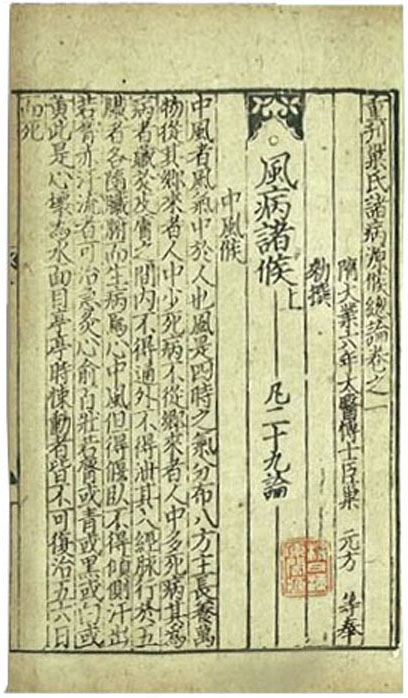 重刊巢氏諸病源候總論卷之一
隋大業六年太醫博士臣巢 元方 等奉
勑撰
風病諸候上 凡二十九論
中風候
中風者風氣中於人也風是四時之氣分布八方主長養萬
物從其鄉來者人中少死病不從鄉來者人中多死病其為
病者藏於皮膚之間內不得通外不得泄其入經脉行於五
臟者各隨臟腑而生病焉心中風但得偃臥不得傾側汗出
若脣赤汗流者可治急灸心俞百壯若脣或青或黑或白或
黃此是心壞為水面目亭亭時悚動者皆不可復治五六日
而死